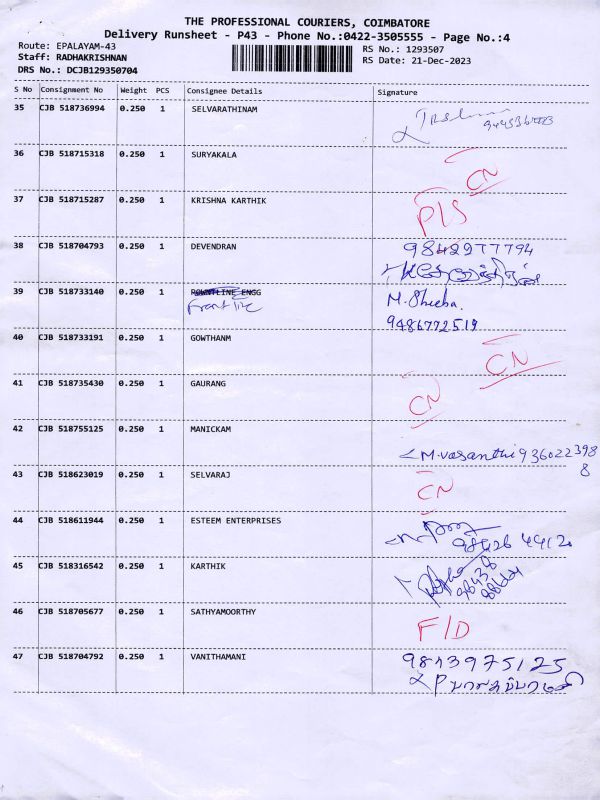 THE PROFESSIONAL COURIERS, COIMBATORE
Delivery Runsheet - P43 - Phone No.:0422-3505555 - Page No.:4
Route: EPALAYAM-43
Staff: RADHAKRISHNAN
DRS No.: DCJB129350704
RS No.: 1293507
RS Date: 21-Dec-2023
S No Consignment No Weight PCS Consignee Details Signature
35 CJB 518736994 0.250 1 SELVARATHINAM
36 CJB 518715318 0.250 1 SURYAKALA CN
37 CJB 518715287 0.250 1 KRISHNA KARTHIK P/S
38 CJB 518704793 0.250 1 DEVENDRAN 9842977794
39 CJB 518733140 0.250 1 ENGG M. Sheeba.
9486772519
40 CJB 518733191 0.250 1 GOWTHANM CN
41 CJB 518735430 0.250 1 GAURANG CN
42 CJB 518755125 0.250 1 MANICKAM M.vasanthi 936022398
8
43 CJB 518623019 0.250 1 SELVARAJ CN
44 CJB 518611944 0.250 1 ESTEEM ENTERPRISES
45 CJB 518316542 0.250 1 KARTHIK
46 CJB 518705677 0.250 1 SATHYAMOORTHY F/D
47 CJB 518704792 0.250 1 VANITHAMANI 9843975125